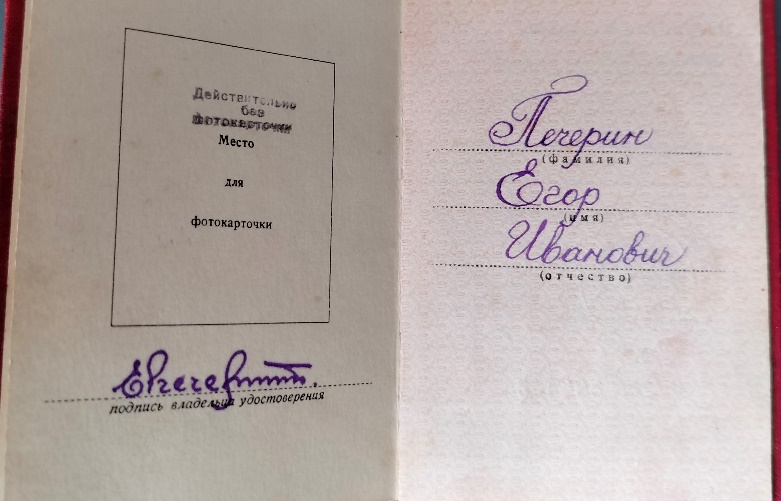 Действительно
без
фотокарточки
Место
для
фотокарточки
подпись владельца удостоверения
Печерин
(фамилия)
Егор
(имя)
Иванович
(отчество)